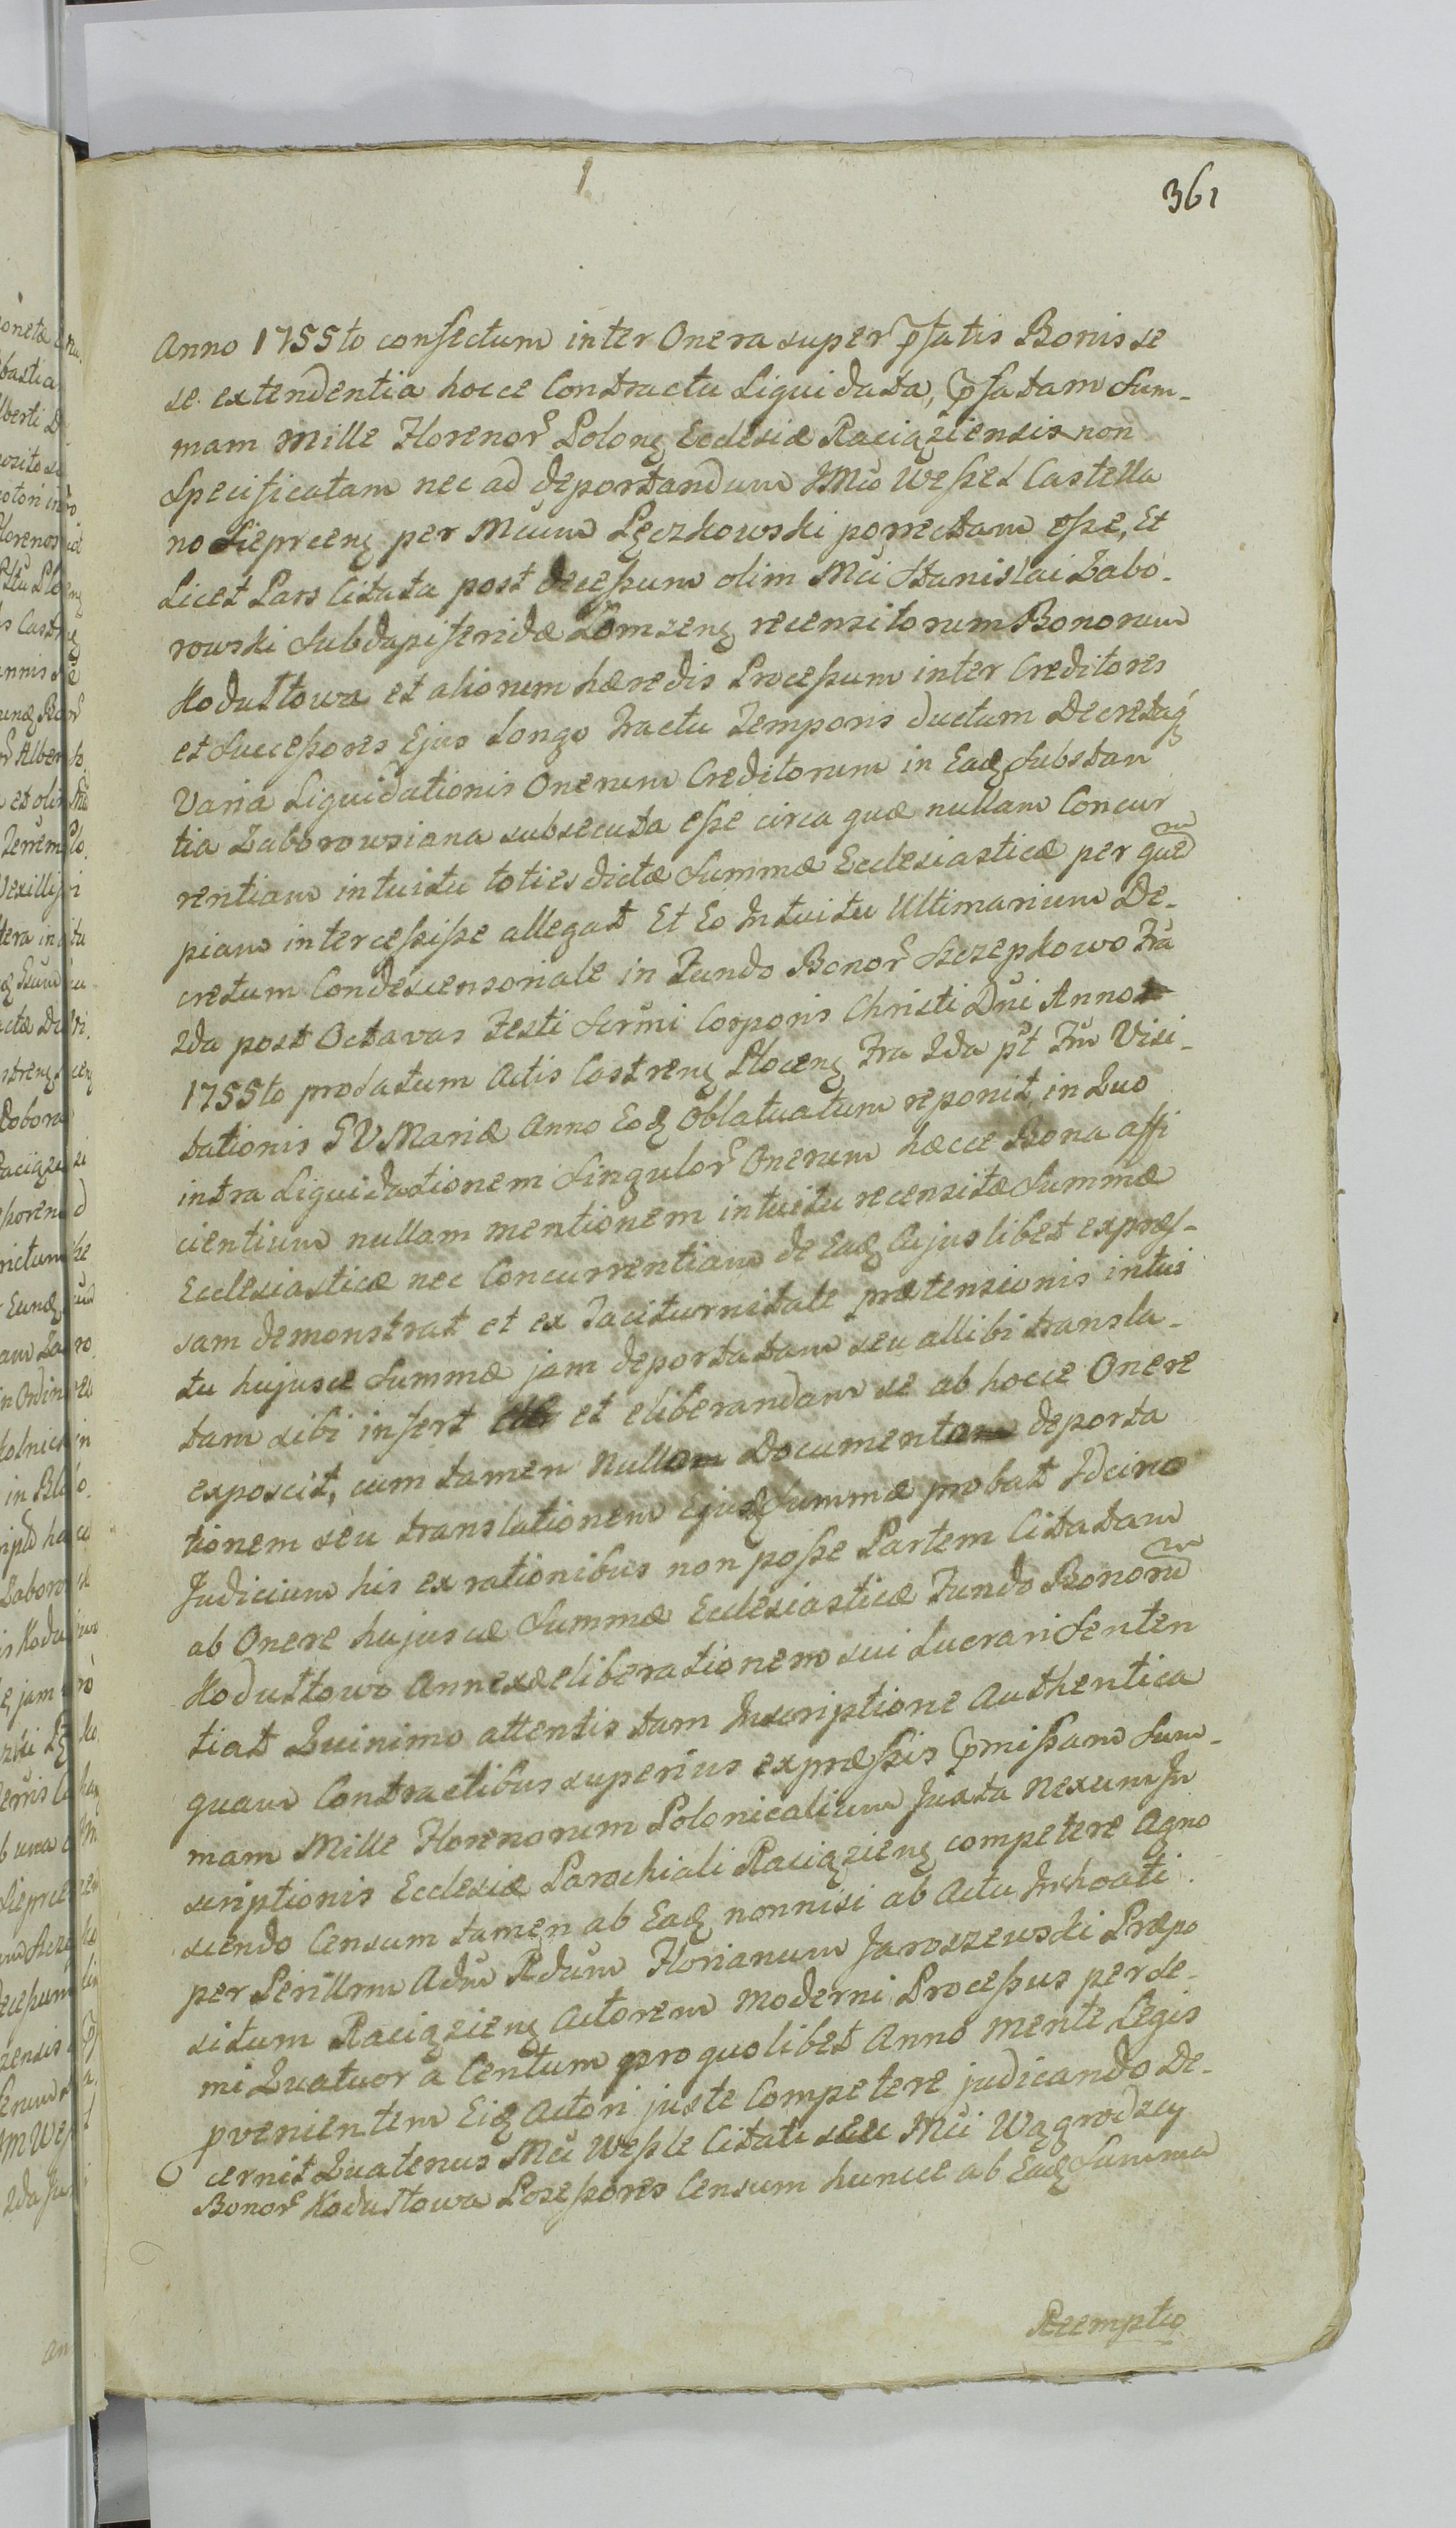 361
Anno 1755to confectum inter Onera super p̃fatis Bonis se
se extendentia hocce Contractu Liquidata, p̃fatam Sum-
mam Mille Florenor̃ Polonꝫ Ecclesiæ Raciąziensis non
Specificatam nec ad deportandum JMci Weßel Castella
no Sieprcenꝫ per Mcum Lęczkowski porrectam eße, Et
Licet Pars Citata post deceßum olim Mci Stanislai Zabo-
rowski Subdapiferidæ Łomzenꝫ recensitorum Bonorum
Koduttowa et aliorum hæredis Proceßum inter Creditores
et Succeßores Ejus Longo Tractu Temporis ductum Decretaq́
Varia Liquidationis Onerum Creditorum in Eadꝫ Substan
tia Zaborowsiana subsecuta eße circa quæ nullam Concur
rentiam intuitu toties dictæ Summæ Ecclesiasticæ per quem
piam interceßiße allegat Et Eo Intuitu Ultimarium De-
cretum Condescensoriale in Fundo Bonor̃ Szczepkowo Fria
2da post Octavas Festi Scrmi Corporis Christi Dni Anno
1755to prodatum Actis Castrenꝫ Plocenꝫ Fra 2da pt Fm Visi-
tationis BV Mariæ Anno Eodꝫ Oblatuatum reponit, in Quo
intra Liquidationem Singulor̃ Onerum hæcce Bona affi
cientium nullam mentionem intuitu recensitæ Summæ
Ecclesiasticæ nec Concurrentiam de Eadꝫ Cujuslibet expres-
sam demonstrat et ex Taciturnitate prætensionis intui
tu hujusce Summæ jam deportatam seu allibi transla-
tam sibi infert et eliberandam se ab hocce Onere
exposcit, cum tamen nullam Documentam deporta
tionem seu translationem Ejusdꝫ Summæ probat Idcirco
Judicium his ex rationibus non poße Partem Citatam
ab Onere hujusce Summæ Ecclesiasticæ Fundo Bonorum
Koduttowo Annexæ eliberationem sui lucrari Senten
tiat Quinimo attentis tam Inscriptione Authentica
quam Contractibus superius expræßis p̃mißam Sum-
mam Mille Florenorum Polonicalium Juxta Nexum In
scriptionis Ecclesiæ Parochiali Raciązienꝫ competere Agno
scendo Censum tamen ab Eadꝫ nonnisi ab Actu Inchoati
per Perillrm Adm Rdum Florianum Jaroszewski Præpo
situm Raciązienꝫ Actorem Moderni Proceßus per se-
mi Quatuor a Centum pro quolibet Anno Mente Legis
pvenientem Eidꝫ Actori juste Competere judicando De-
cernit Quatenus Mci Weßle Citati seu Mci Wągrodzcy
Bonor̃ Koduttowa Poseßores Censum huncce ab Eadꝫ Summa
Reemptio